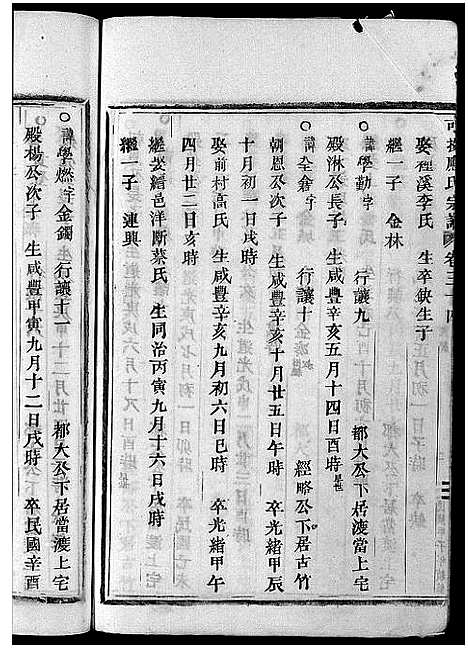 娶種溪李氏　生卒缺生子
繼一子　金林
○諱學勤字　行讓九　都大公下居當渡上宅
殿淋公長子　生咸豐辛亥五月十四日酉時
○諱字　行讓十　經略公下居古竹
朝恩公次子　生咸豐辛亥十月廿五日午時　卒光緒甲辰
十月初一日戌時
娶前村高氏　生咸豐辛亥九月初六日巳時　卒光緒甲午
四月廿二日亥時
繼娶縉邑洋斷蔡氏　生同治丙寅九月十六日戌時
繼一子　連興
○諱學燃字金鐲　行讓十一　都大公下居當渡上宅
殿楊公次子　生咸豐甲寅九月十二日戌時　卒民國辛酉